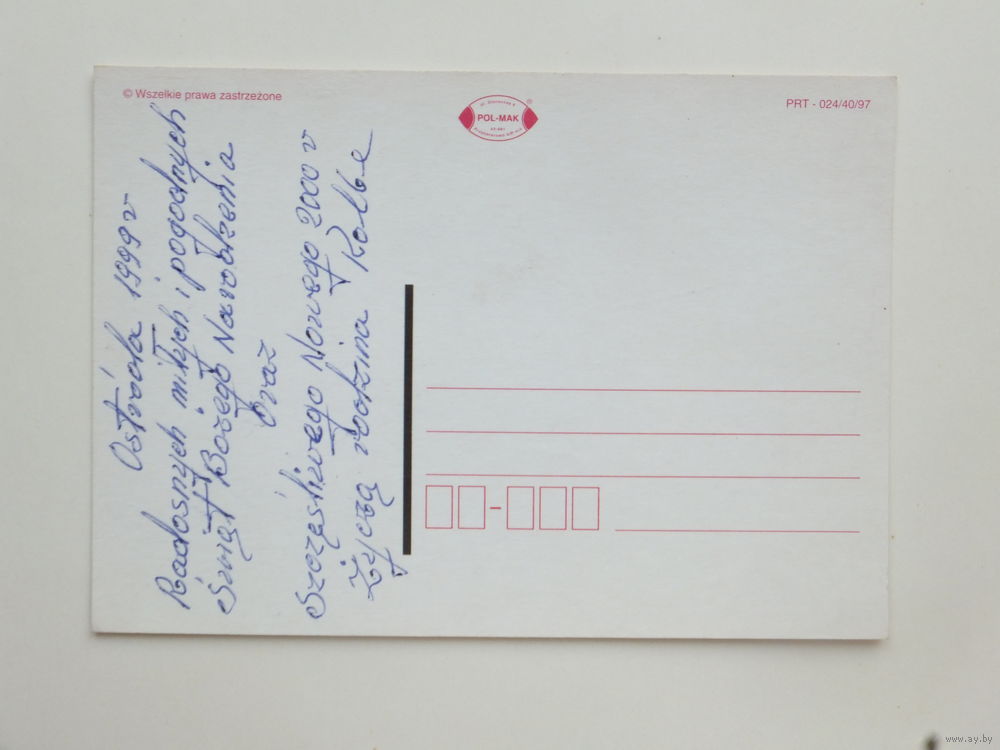 © Wszelkie prawa zastrzeżone
POL-MAK
®
PRT - 024/40/97
Ostróda 1999 r
Radosnych miłych i pogodnych
Świąt Bożego Narodzenia
oraz
Szczęśliwego Nowego 2000 r
Życzą rodzina Kolbe
www.ay.by